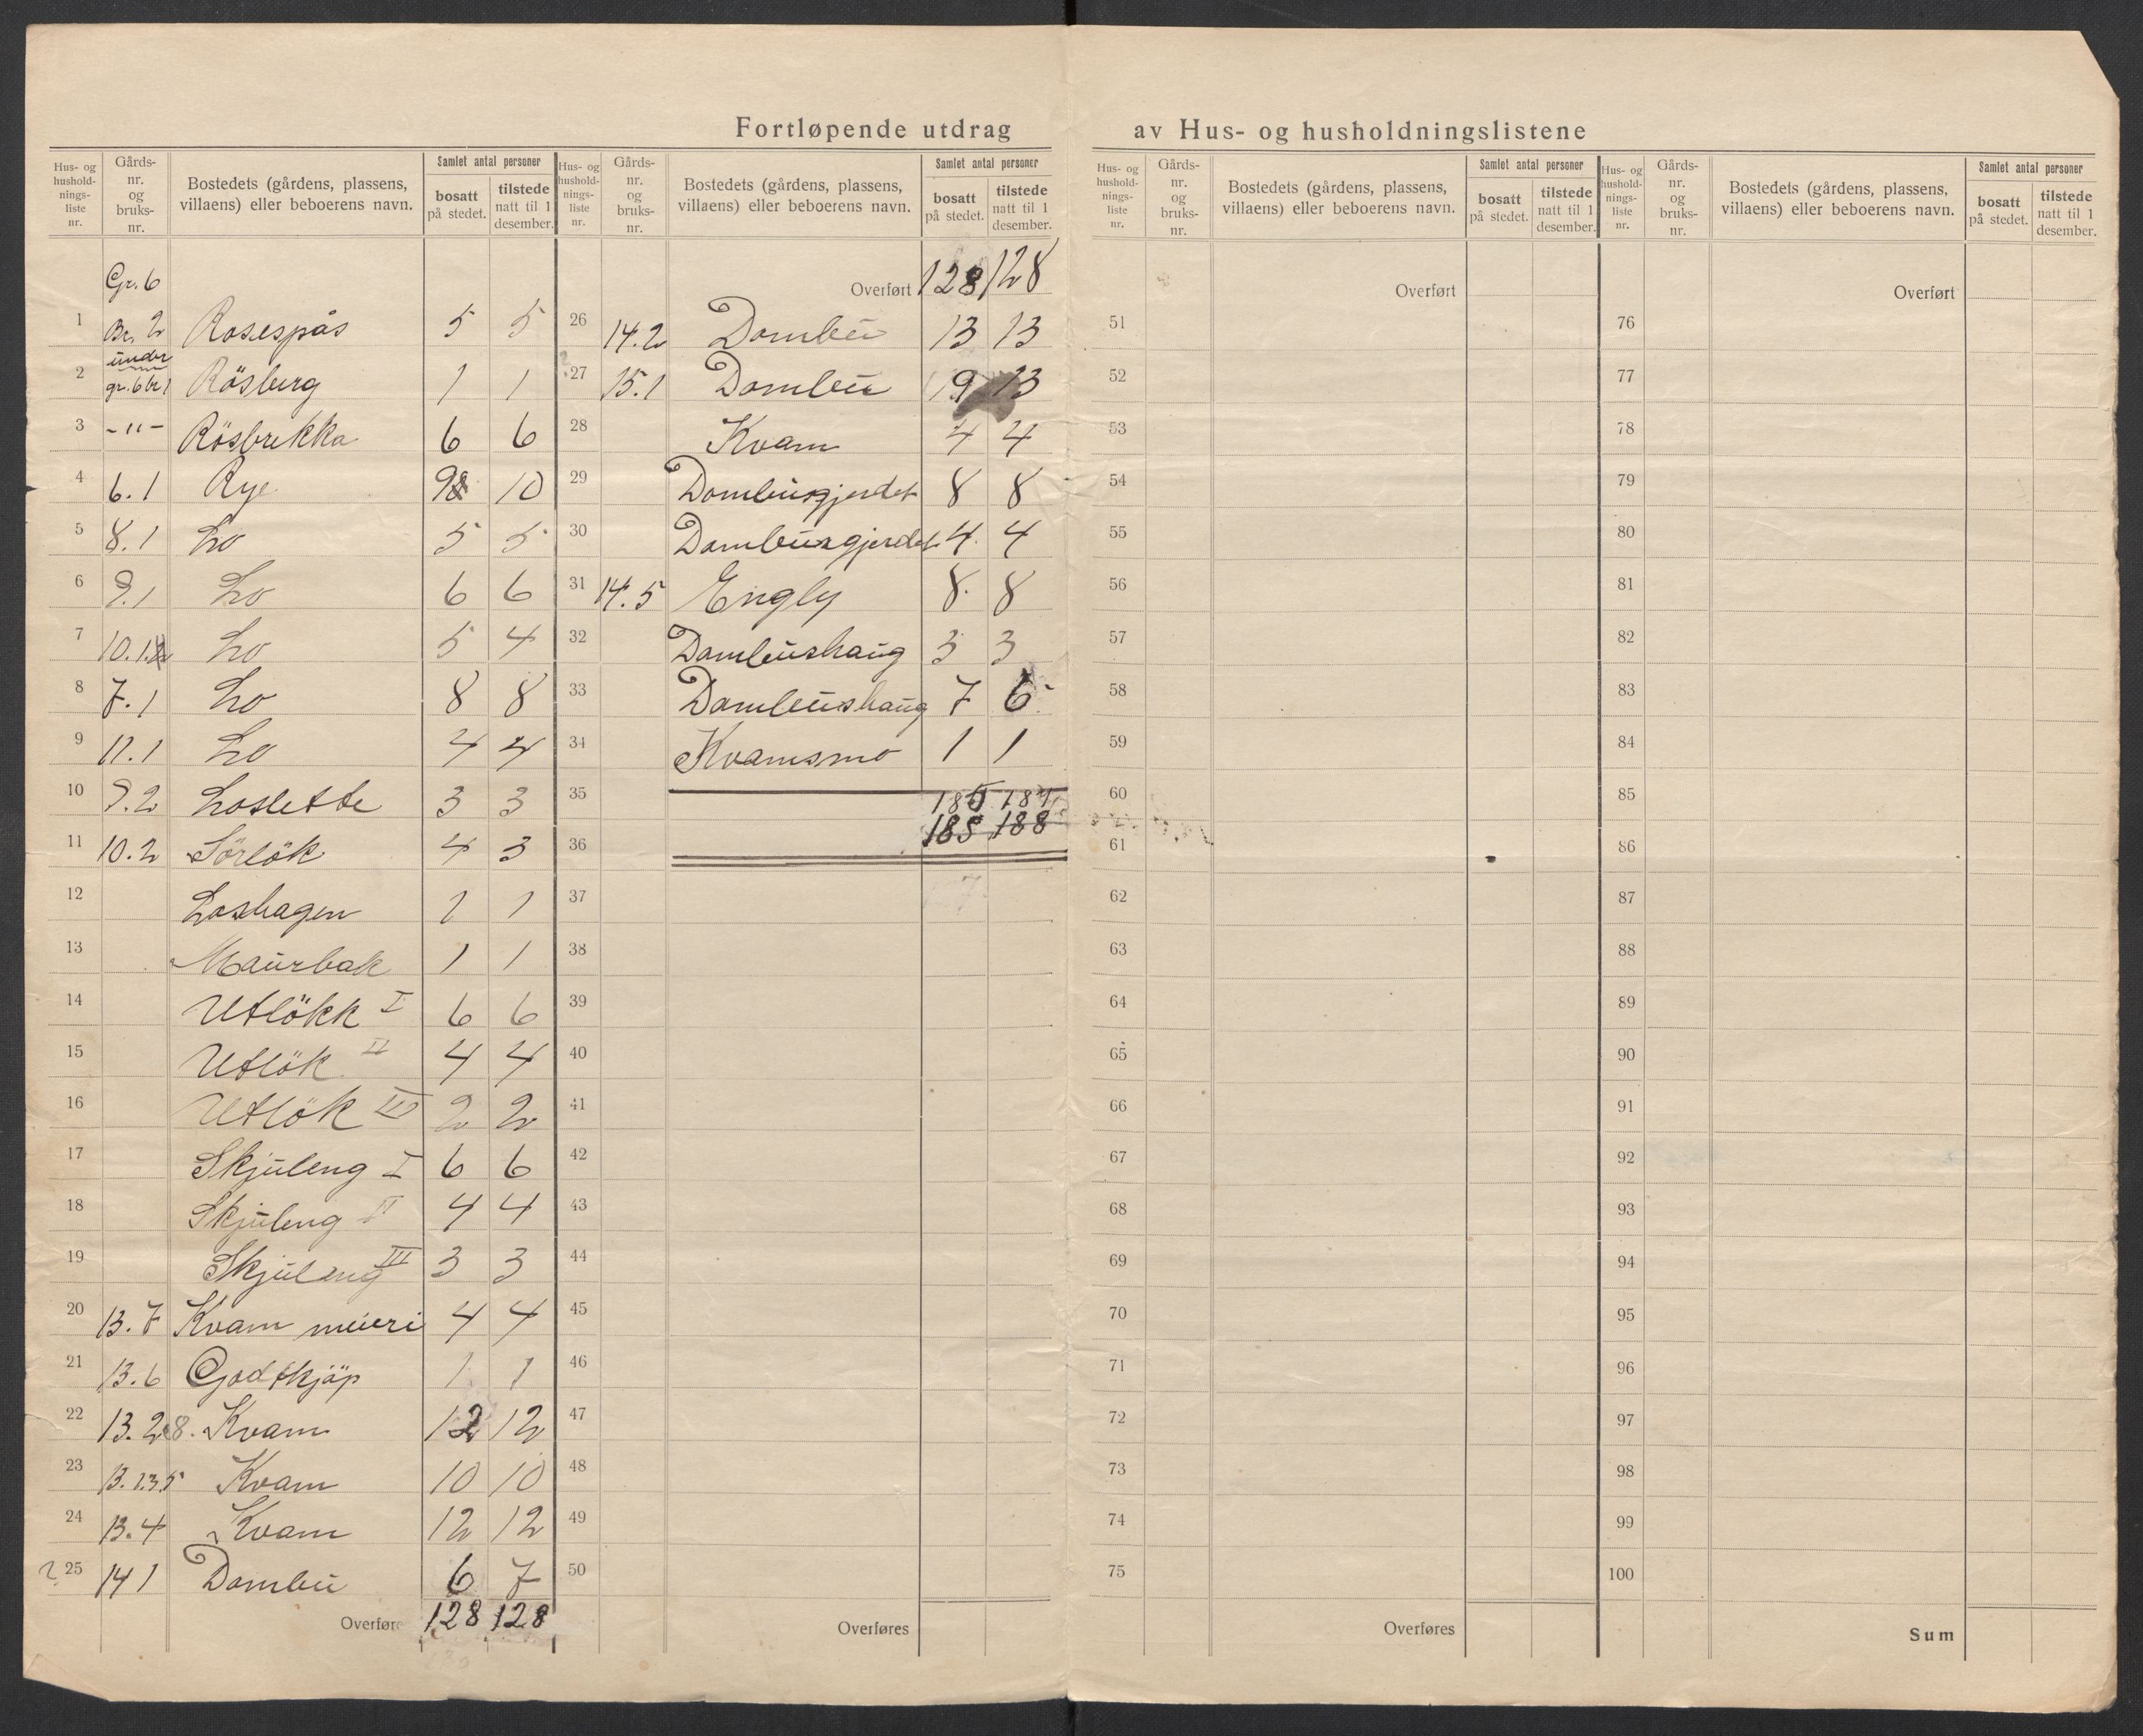 Fortløpende utdrag av Hus- og husholdningslistene
Hus- og hushold-nings-liste nr. Gårds-nr. og bruks-nr. Bostedets (gårdens, plassens, villaens) eller beboerens navn. Samlet antal personer bosatt på stedet. tilstede natt til 1 desember.
Gr. 6
1 Br. 2 Rosespås 5 5
2 under gr. 6 br 1 Rösberg 1 1
3 -"- Rösbrekka 6 6
4 6.1 Rye 9 10
5 8.1 Lo 5 5
6 9.1 Lo 6 6
7 10.1. Lo 5 4
8 7.1 Lo 8 8
9 11.1 Lo 4 4
10 9.2 Loslette 3 3
11 10.2 Sörlök 4 3
12 Loshagen 1 1
13 Maurbak 1 1
14 Utlökk I 6 6
15 Utlök II 4 4
16 Utlök III 2 2
17 Skjuleng I 6 6
18 Skjuleng II 4 4
19 Skjuleng III 3 3
20 13.7 Kvam meieri 4 4
21 13.6 Godtkjöp 1 1
22 13.2 8. Kvam 12 12
23 13.1.3.5 Kvam 10 10
24 13.4 Kvam 12 12
25 14 1 Dombu 6 7
Overføres 128 128
Hus- og hushold-nings-liste nr. Gårds-nr. og bruks-nr. Bostedets (gårdens, plassens, villaens) eller beboerens navn. Samlet antal personer bosatt på stedet. tilstede natt til 1 desember.
Overført 128 128
26 14.2 Dombu 13 13
27 15.1 Dombu 9 13
28 Kvam 4 4
29 Dombusgjerdet 8 8
30 Dombusgjerdet 4 4
31 14.5 Engly 8 8
32 Dombushaug 3 3
33 Dombushaug 7 6
34 Kvamsmo 1 1
35
185 188
36
37
38
39
40
41
42
43
44
45
46
47
48
49
50
Overføres
Hus- og hushold-nings-liste nr. Gårds-nr. og bruks-nr. Bostedets (gårdens, plassens, villaens) eller beboerens navn. Samlet antal personer bosatt på stedet. tilstede natt til 1 desember.
Overført
51
52
53
54
55
56
57
58
59
60
61
62
63
64
65
66
67
68
69
70
71
72
73
74
75
Overføres
Hus- og hushold-nings-liste nr. Gårds-nr. og bruks-nr. Bostedets (gårdens, plassens, villaens) eller beboerens navn. Samlet antal personer bosatt på stedet. tilstede natt til 1 desember.
Overført
76
77
78
79
80
81
82
83
84
85
86
87
88
89
90
91
92
93
94
95
96
97
98
99
100
Sum